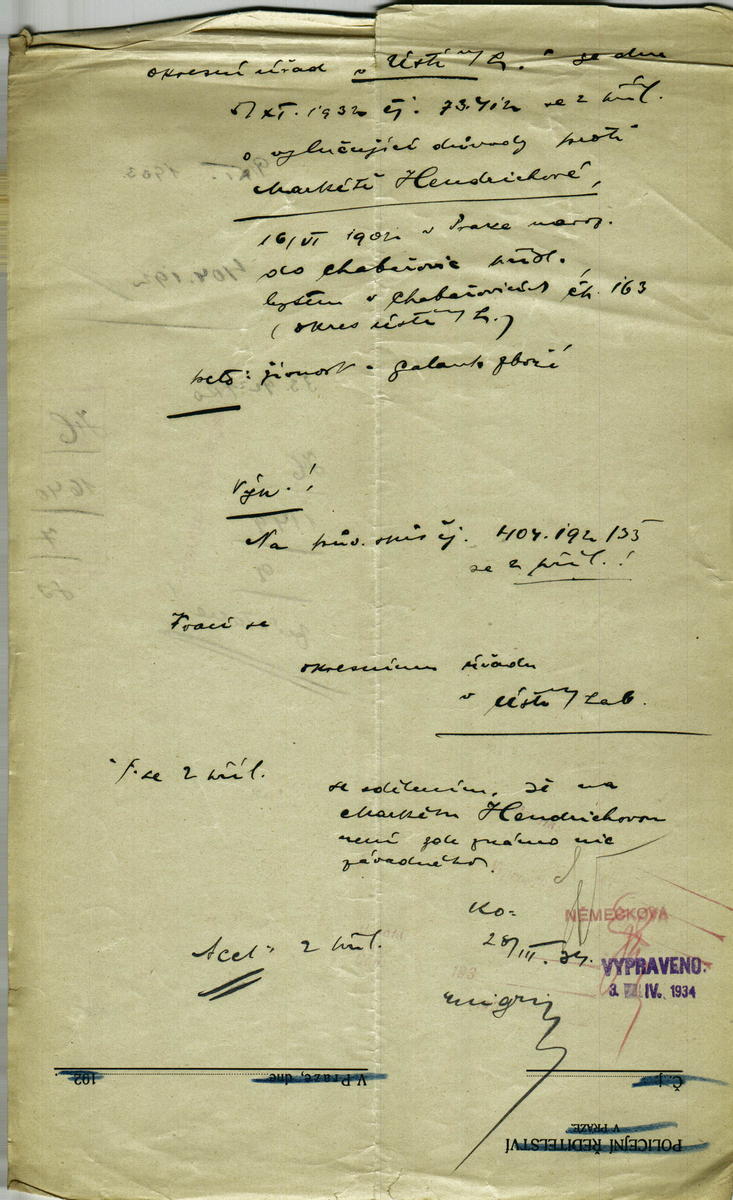 okresní úřad v Ústí n/L. se dne
XI. 1932 čj. 73.412 se 2 příl.
o vylučující důvody proti
Markétě Hendrichové,
16/VI 1902 v Praze naroz.
do Chabařovic přísl.,
bytem v Chabařovicích čp. 163
(okres Ústí n/L.)
živnost - galant. zboží
Výn.!
Na pův. spis čj. 404.192/33
se 2 příl.!
Vrací se
okresnímu úřadu
v Ústí n/Lab.
se 2 příl.
se sdělením, že na
Markétu Hendrichovou
není zde známo nic
závadného.
2 příl.
Ko:
28/III. 34.
NĚMEČKOVÁ
VYPRAVENO:
3. IV. 1934
Č. j.
V Praze, dne
192
POLICEJNÍ ŘEDITELSTVÍ
V PRAZE